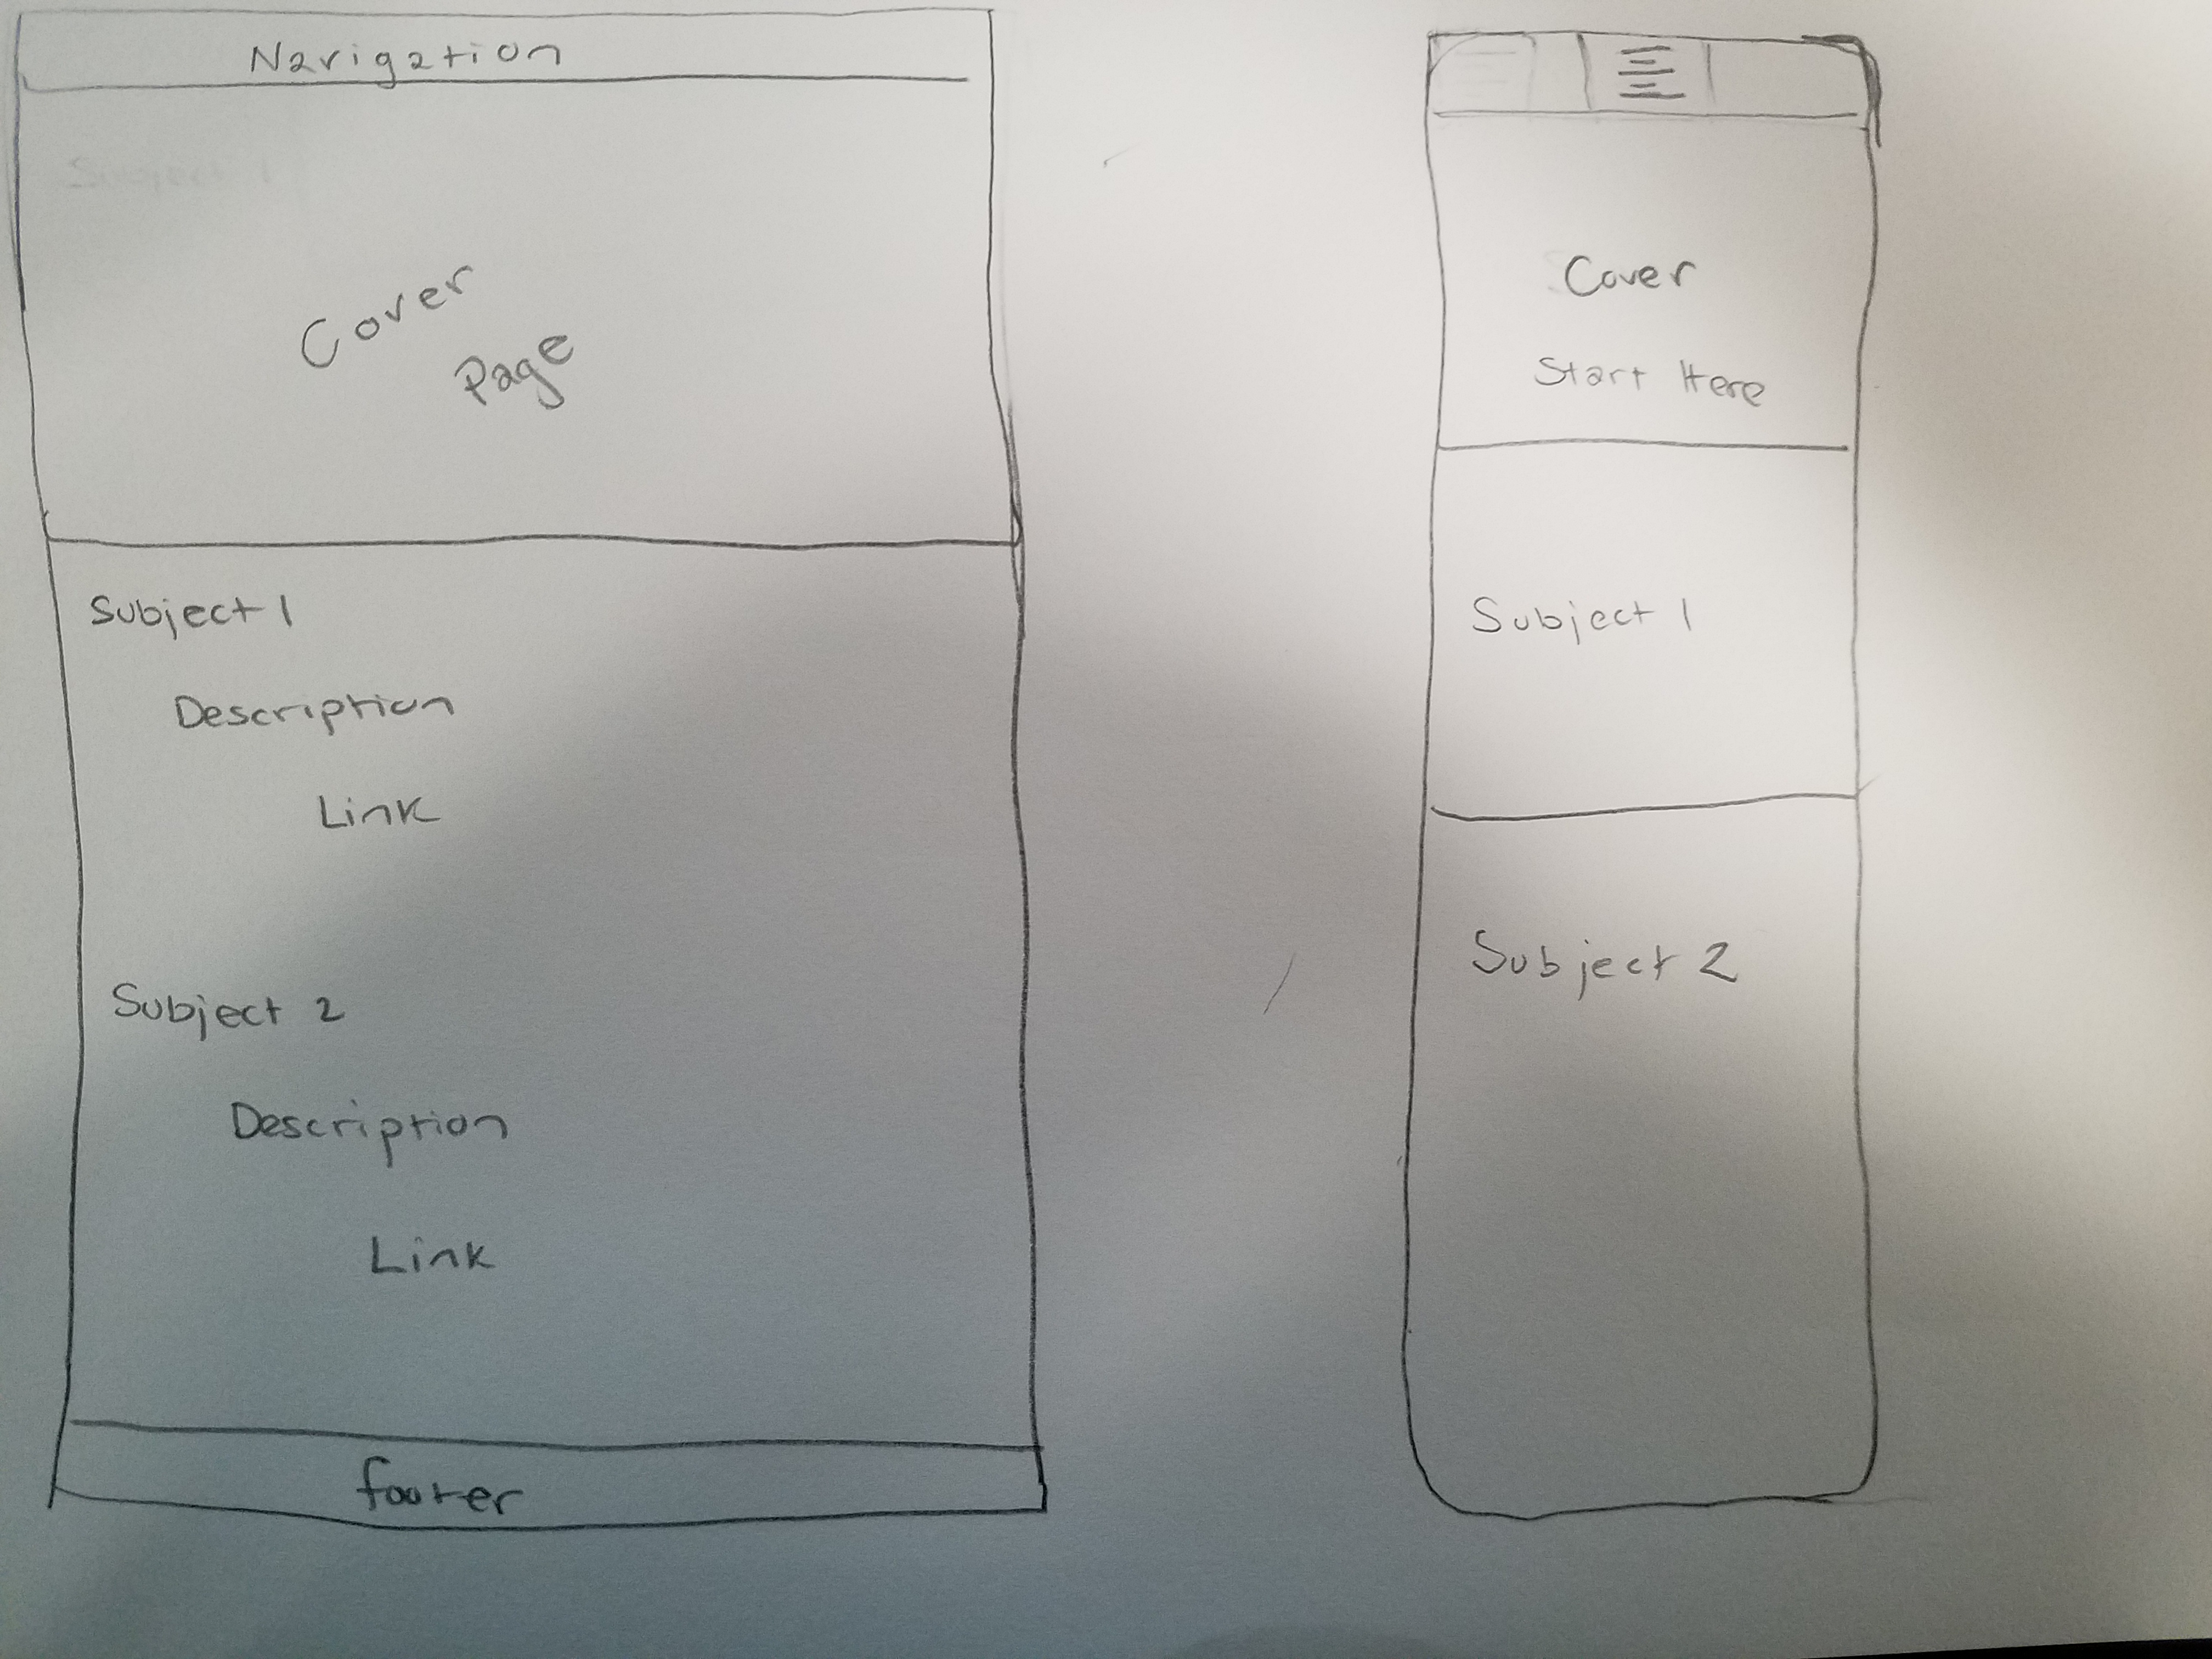 Navigation
Cover
Page
Subject 1
Description
Link
Subject 2
Description
Link
footer
Cover
Start Here
Subject 1
Subject 2